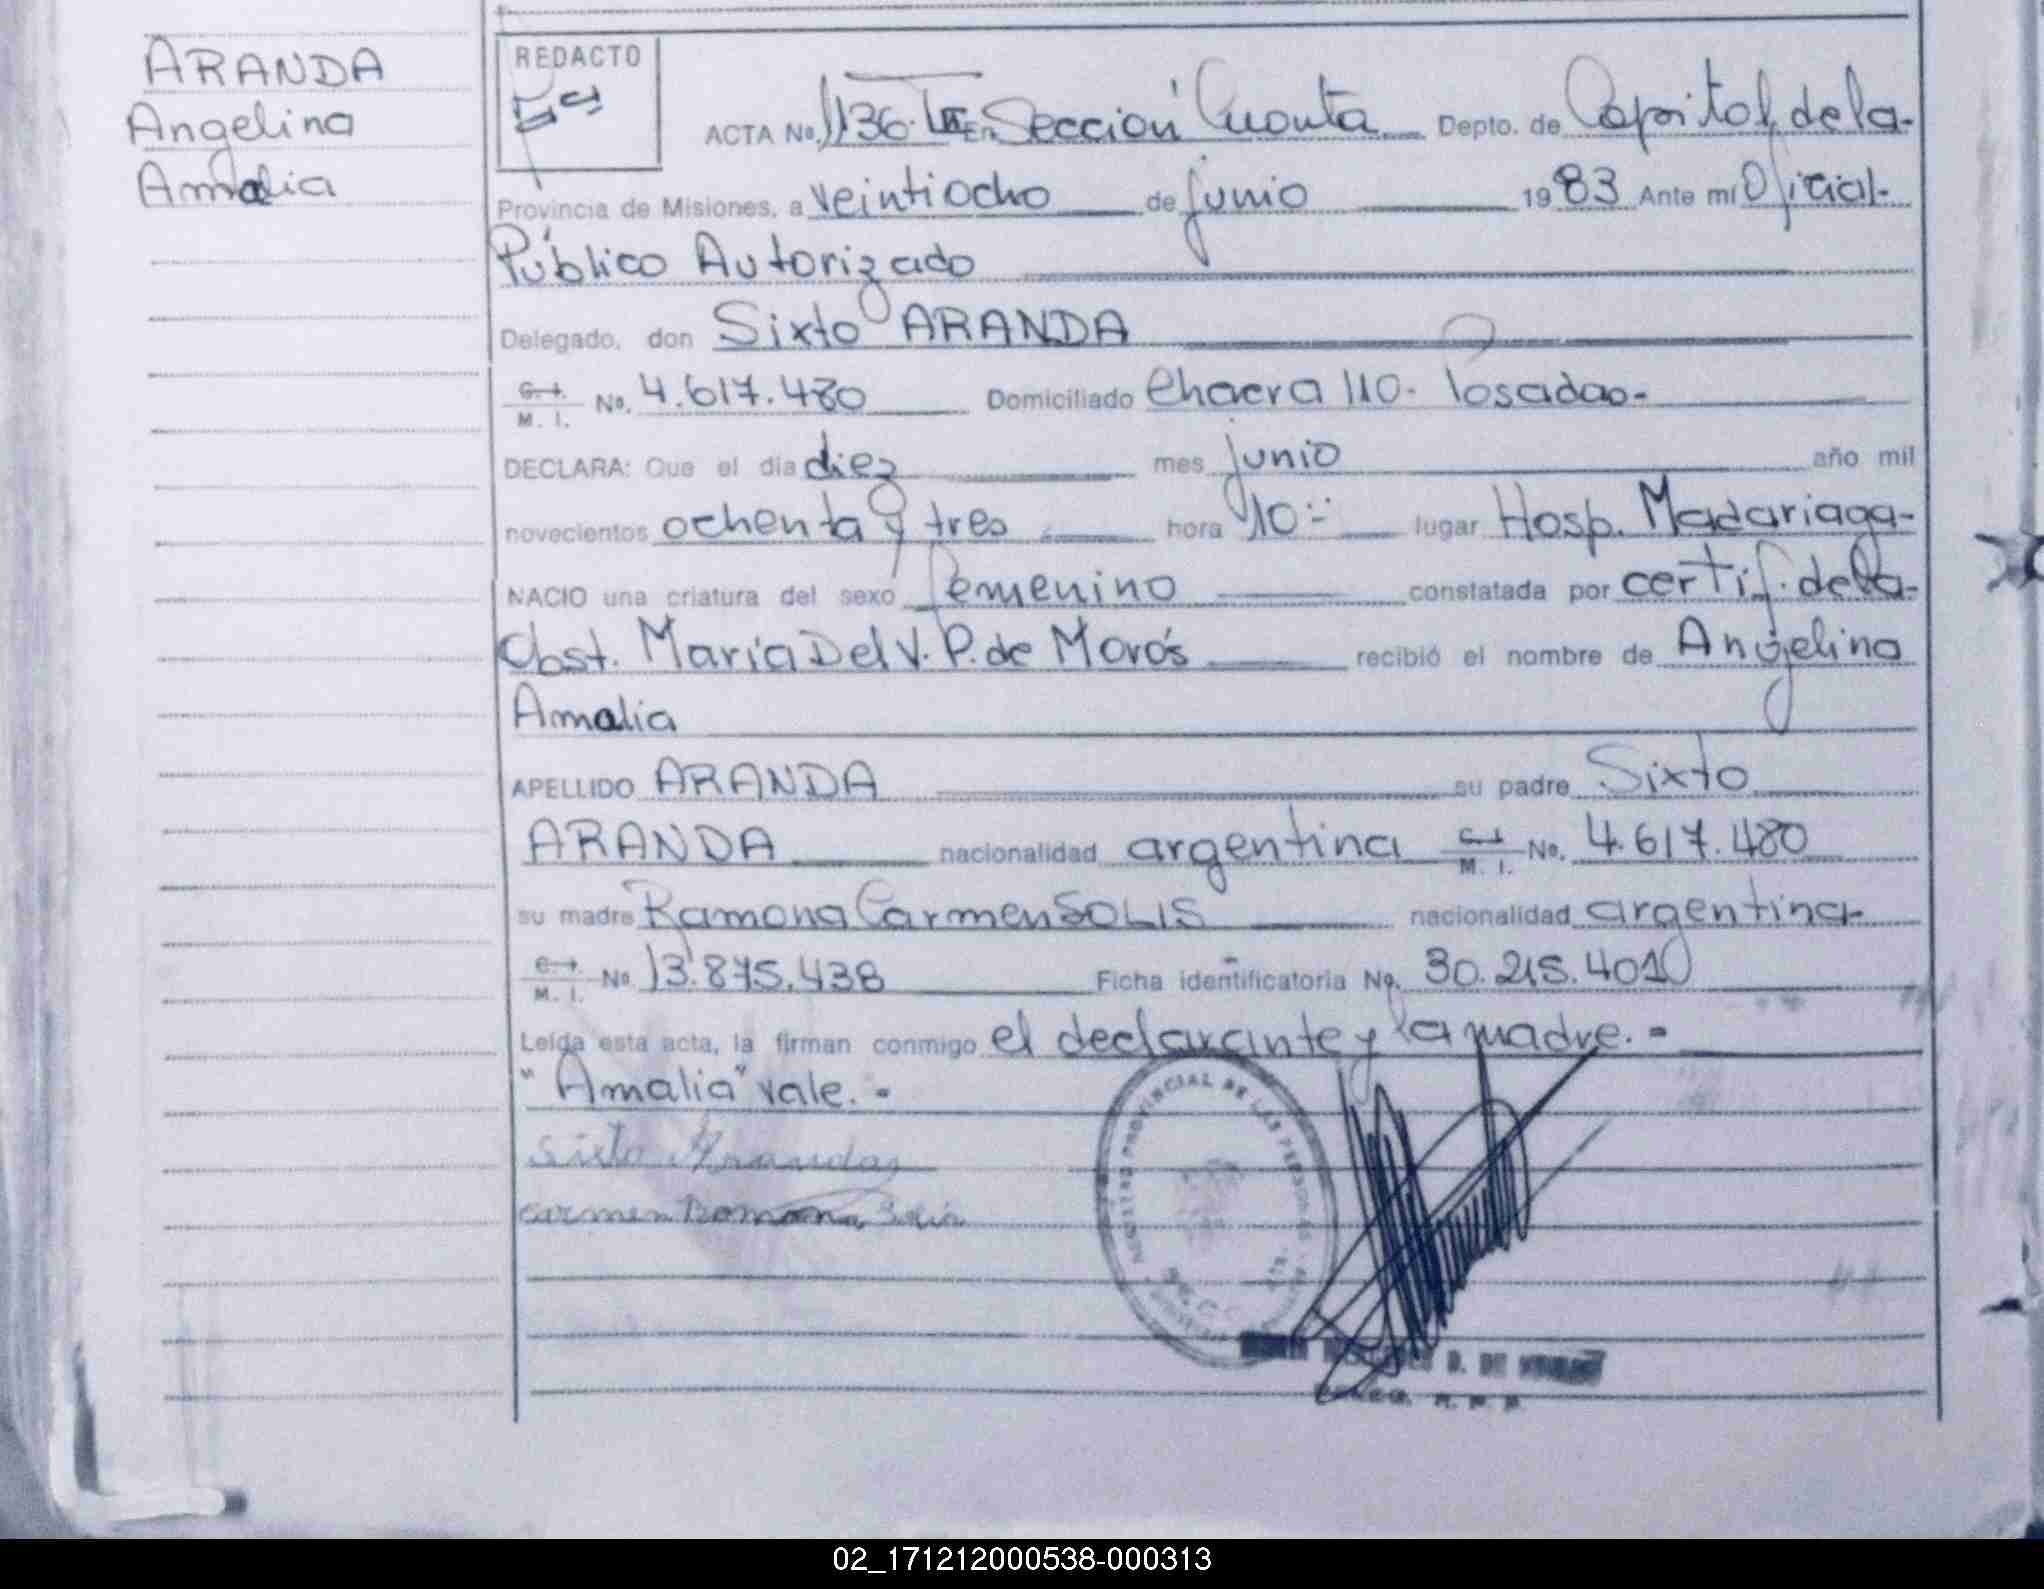 ARANDA
Angelina
Amalia
REDACTO
ACTA No. 1136. En Sección Cuarta Depto. de Capital de la-
Provincia de Misiones, a veintiocho de junio 1983 Ante mí Oficial-
Público Autorizado
Delegado, don Sixto ARANDA
C.I. M. I. No. 4.617.480 Domiciliado Chacra 110- Posadas-
DECLARA: Que el día diez mes junio año mil
novecientos ochenta y tres hora 10:- lugar Hosp. Madariaga-
NACIO una criatura del sexo femenino constatada por certif. de la-
Obst. María Del V. P. de Morós recibió el nombre de Angelina
Amalia
APELLIDO ARANDA su padre Sixto
ARANDA nacionalidad argentina C.I. M. I. No. 4.617.480
su madre Ramona Carmen SOLIS nacionalidad argentina-
C.I. M. I. No. 13.875.438 Ficha identificatoria No. 30.215.401
Leída esta acta, la firman conmigo el declarante y la madre.-
"Amalia" vale.-
Sixto Aranda
Carmen Ramona Solis
REGISTRO PROVINCIAL DE LAS PERSONAS
D. DE
02_171212000538-000313